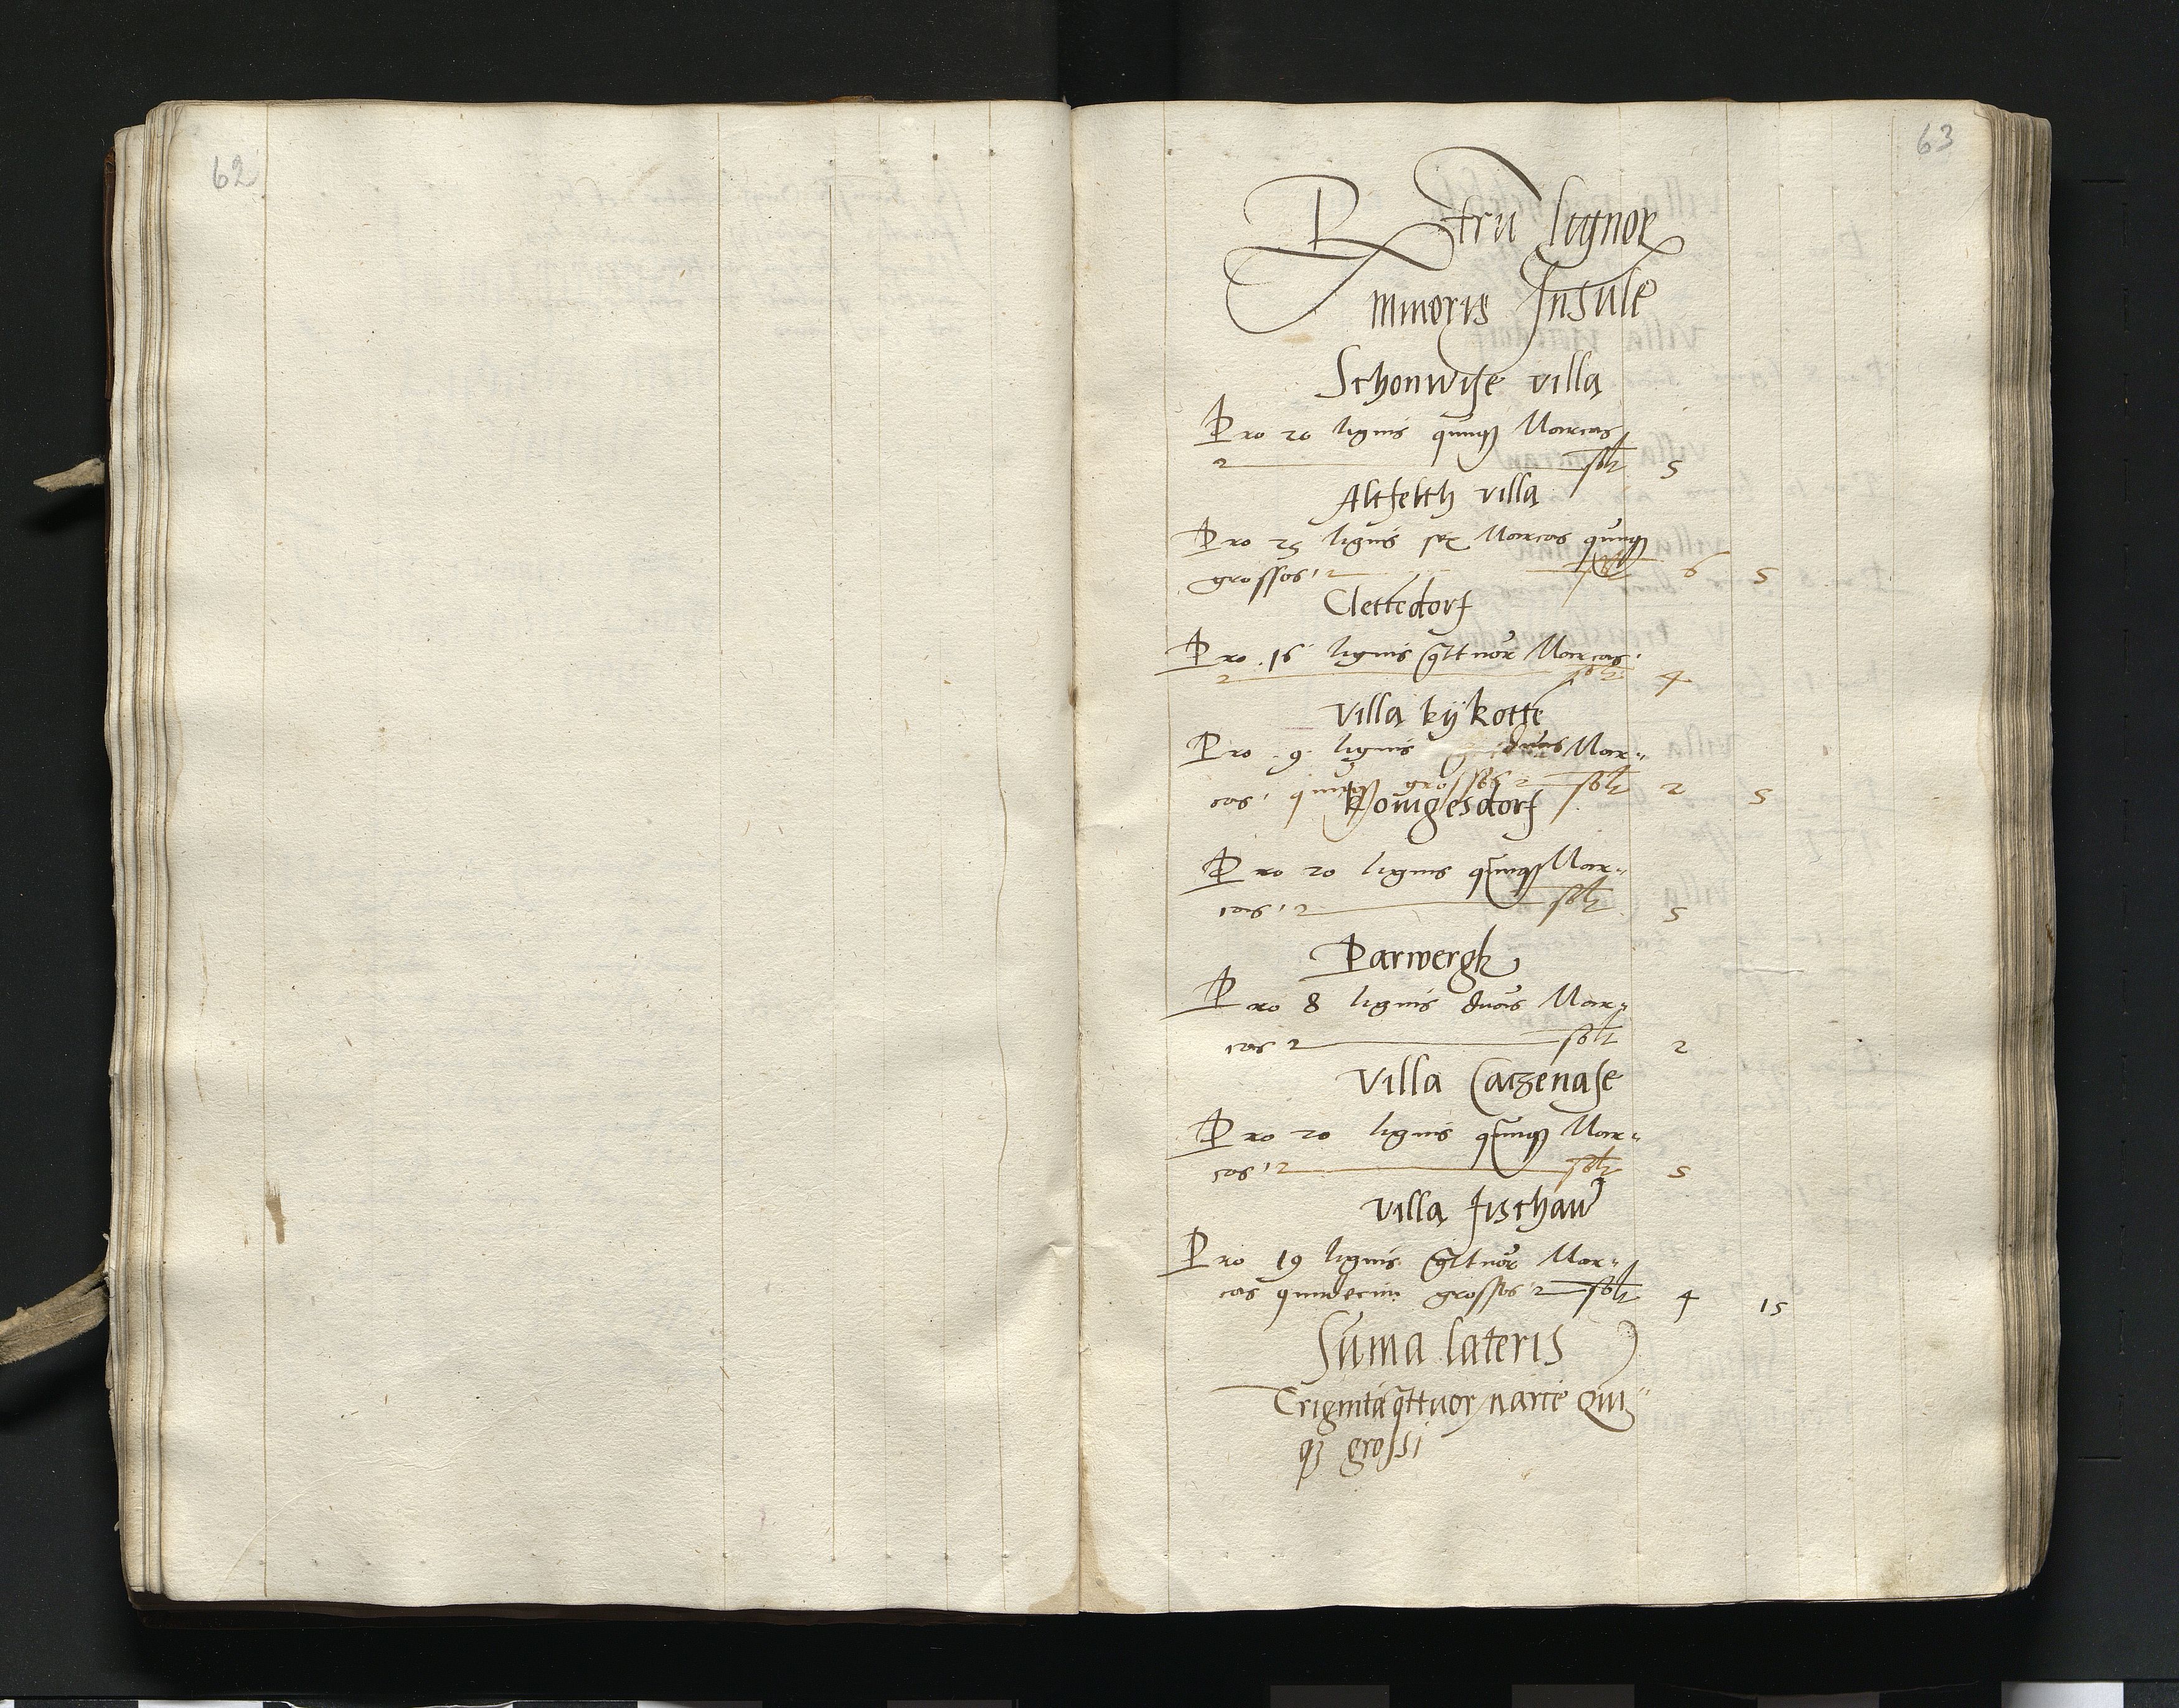 62
63
Ptru lignoꝝ
minoris Insule
Schonwise villa
Pro 20 lignis quinqꝫ Marcas
solt 5
Altfelth villa
Pro 25 lignis sex Marcas quinqꝫ
grossos, 6 5
Clettedorf
Pro 16 lignis q̃ttuor Marcas.
solt 4
Villa kÿkotte
Pro .9. lignis duas Mar„
cas, quinqꝫ grossos solt 2 5
Konigesdorf
Pro 20 lignis quinqꝫ Mar„
cas, solt 5
Parwergk
Pro 8 lignis duas Mar„
cas solt 2
Villa Catzenase
Pro 20 lignis quinqꝫ Mar„
cas, solt 5
Villa Fischaw
Pro 19 lignis q̃ttuor Mar„
cas quindecim grossos solt 4 15
Sum̃a lateris
Triginta q̃ttuor marce Quī„
qꝫ grossi